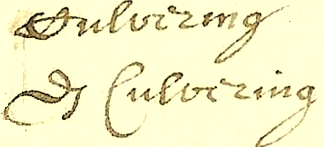 Culvering
D Culvering